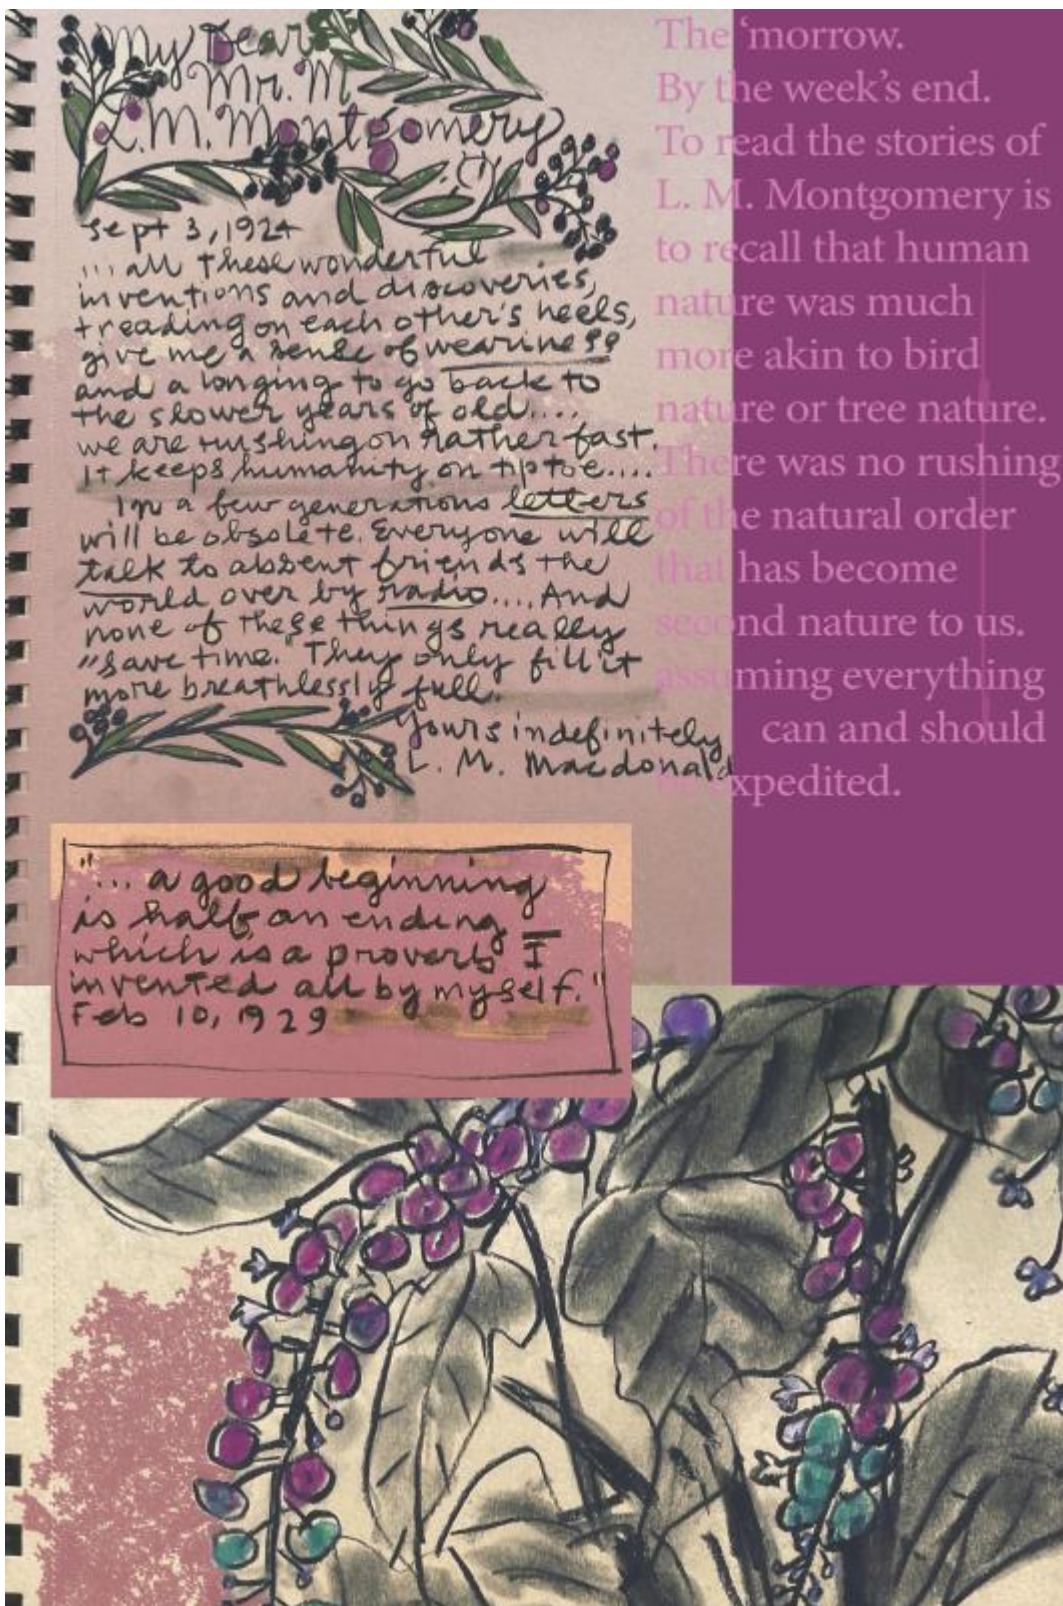 My Dear
Mr. M
L.M. Montgomery
Sept 3, 1924
...all these wonderful
inventions and discoveries,
treading on each other's heels,
give me a sense of weariness
and a longing to go back to
the slower years of old....
we are rushing on rather fast.
It keeps humanity on tiptoe....
In a few generations letters
will be obsolete. Everyone will
talk to absent friends the
world over by radio.... And
none of these things really
"save time." They only fill it
more breathlessly full.
Yours indefinitely,
L. M. Macdonald
"... a good beginning
is half an ending
which is a proverb I
invented all by myself."
Feb 10, 1929
The ‘morrow.
By the week’s end.
To read the stories of
L. M. Montgomery is
to recall that human
nature was much
more akin to bird
nature or tree nature.
There was no rushing
of the natural order
that has become
second nature to us.
assuming everything
can and should
expedited.